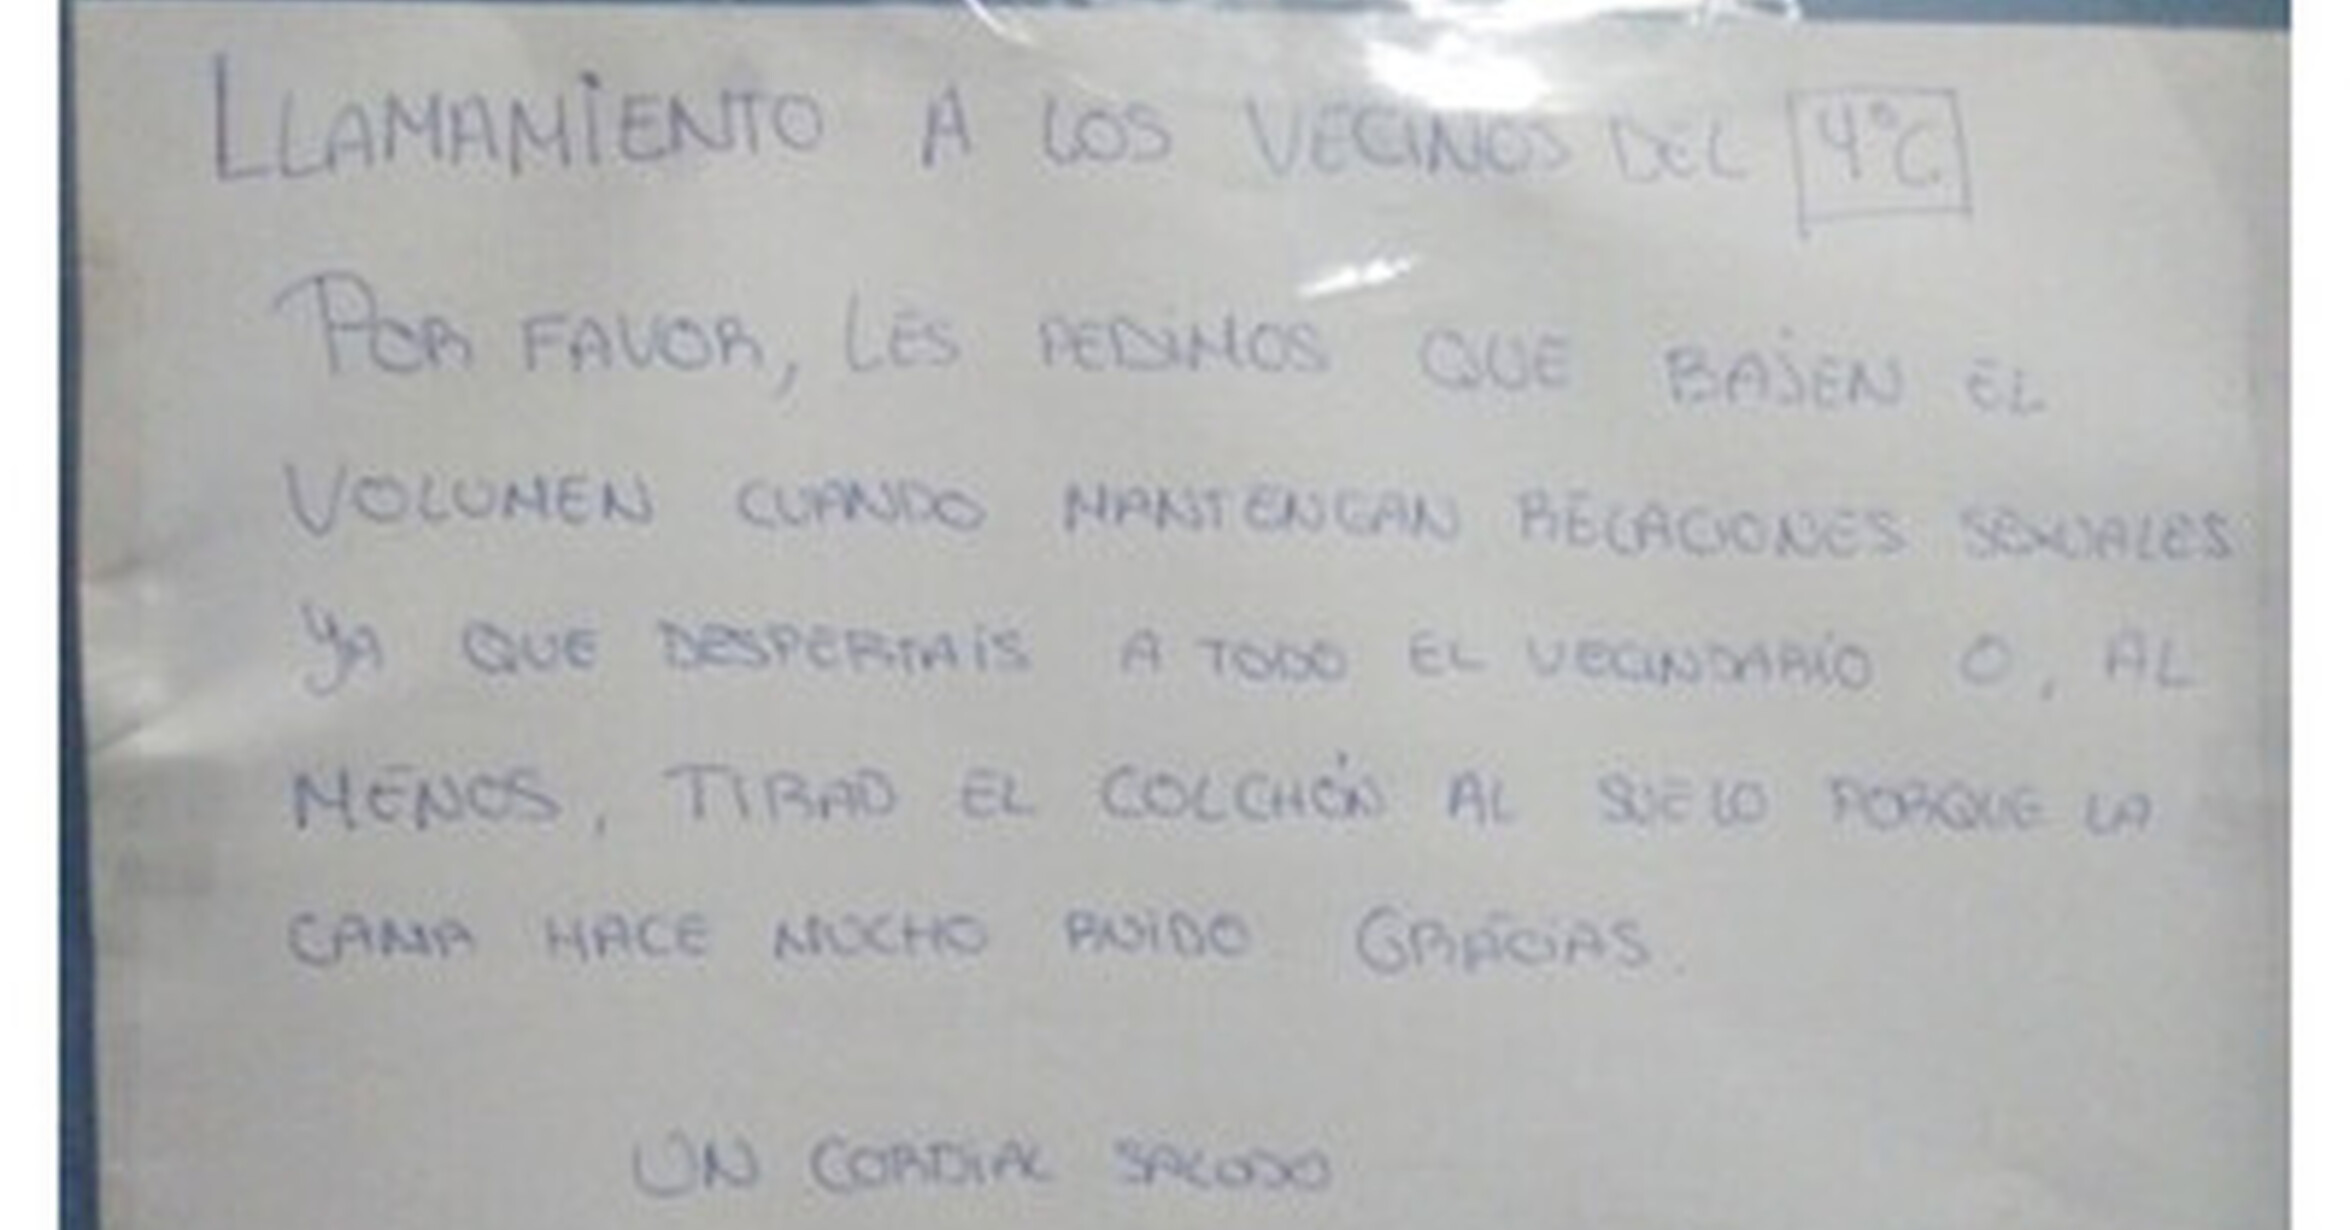 LLAMAMIENTO A LOS VECINOS DEL 4ºC
POR FAVOR, LES PEDIMOS QUE BAJEN EL
VOLUMEN CUANDO MANTENGAN RELACIONES SEXUALES
YA QUE DESPERTAIS A TODO EL VECINDARIO O, AL
MENOS, TIRAD EL COLCHÓN AL SUELO PORQUE LA
CAMA HACE MUCHO RUIDO GRACIAS.
UN CORDIAL SALUDO